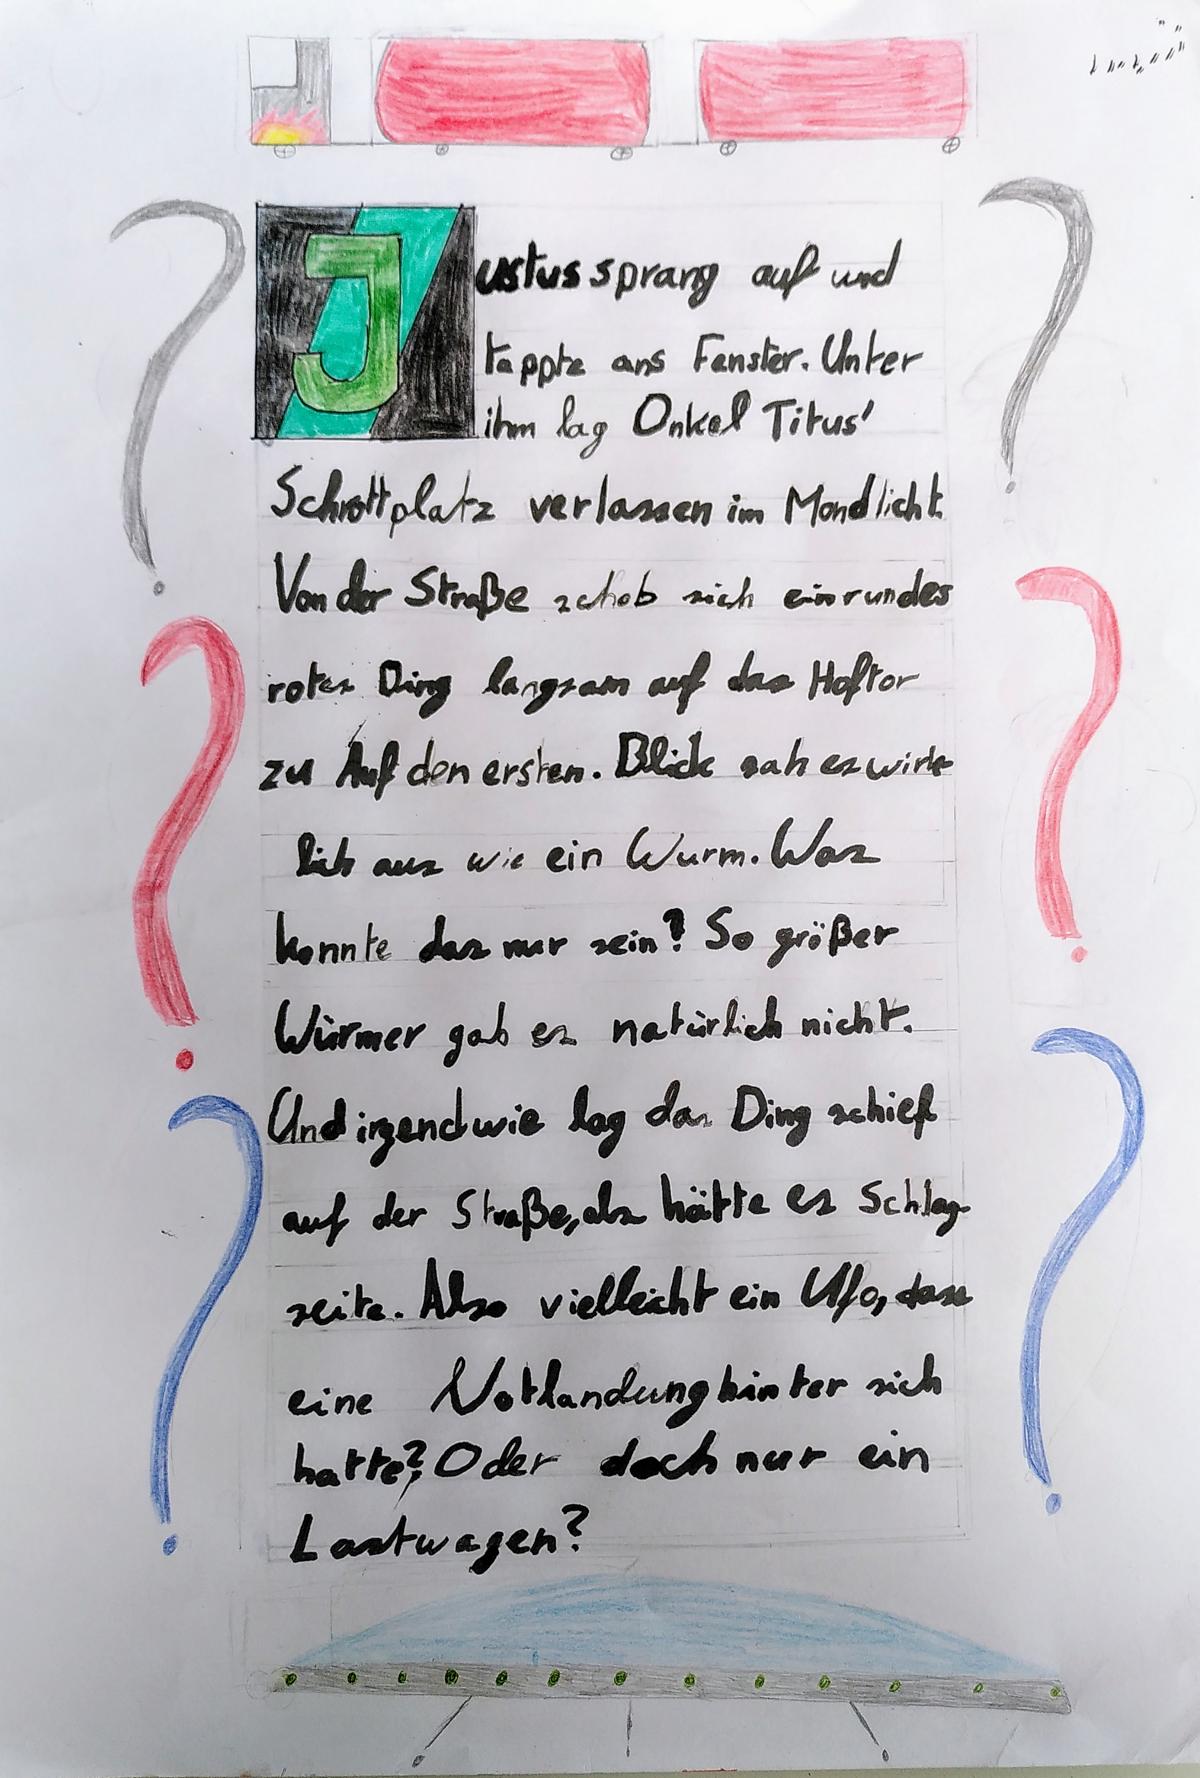 Justus sprang auf und
tappte ans Fenster. Unter
ihm lag Onkel Titus'
Schrottplatz verlassen im Mondlicht.
Von der Straße schob sich ein rundes
rotes Ding langsam auf das Hoftor
zu Auf den ersten. Blick sah es wirk-
lich aus wie ein Wurm. Was
konnte das nur sein? So größer
Würmer gab es natürlich nicht.
Und irgendwie lag das Ding schief
auf der Straße, als hätte es Schlag-
seite. Also vielleicht ein Ufo, dass
eine Notlandung hinter sich
hatte? Oder doch nur ein
Lastwagen?